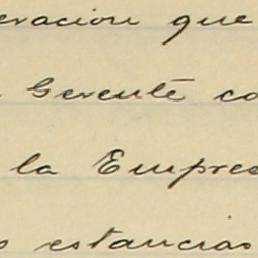 eracion que
Gerente co
la Empres
s estancias